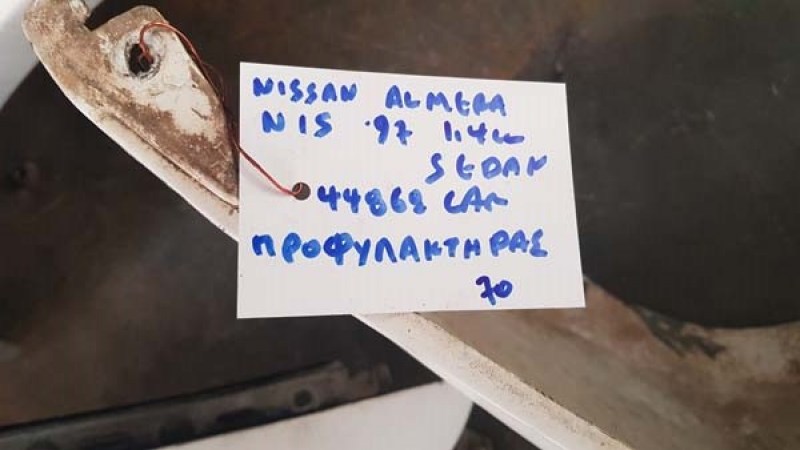 NISSAN ALMERA
N15 '97 1.4cc
SEDAN
44868 CAR
ΠΡΟΦΥΛΑΚΤΗΡΑΣ
70